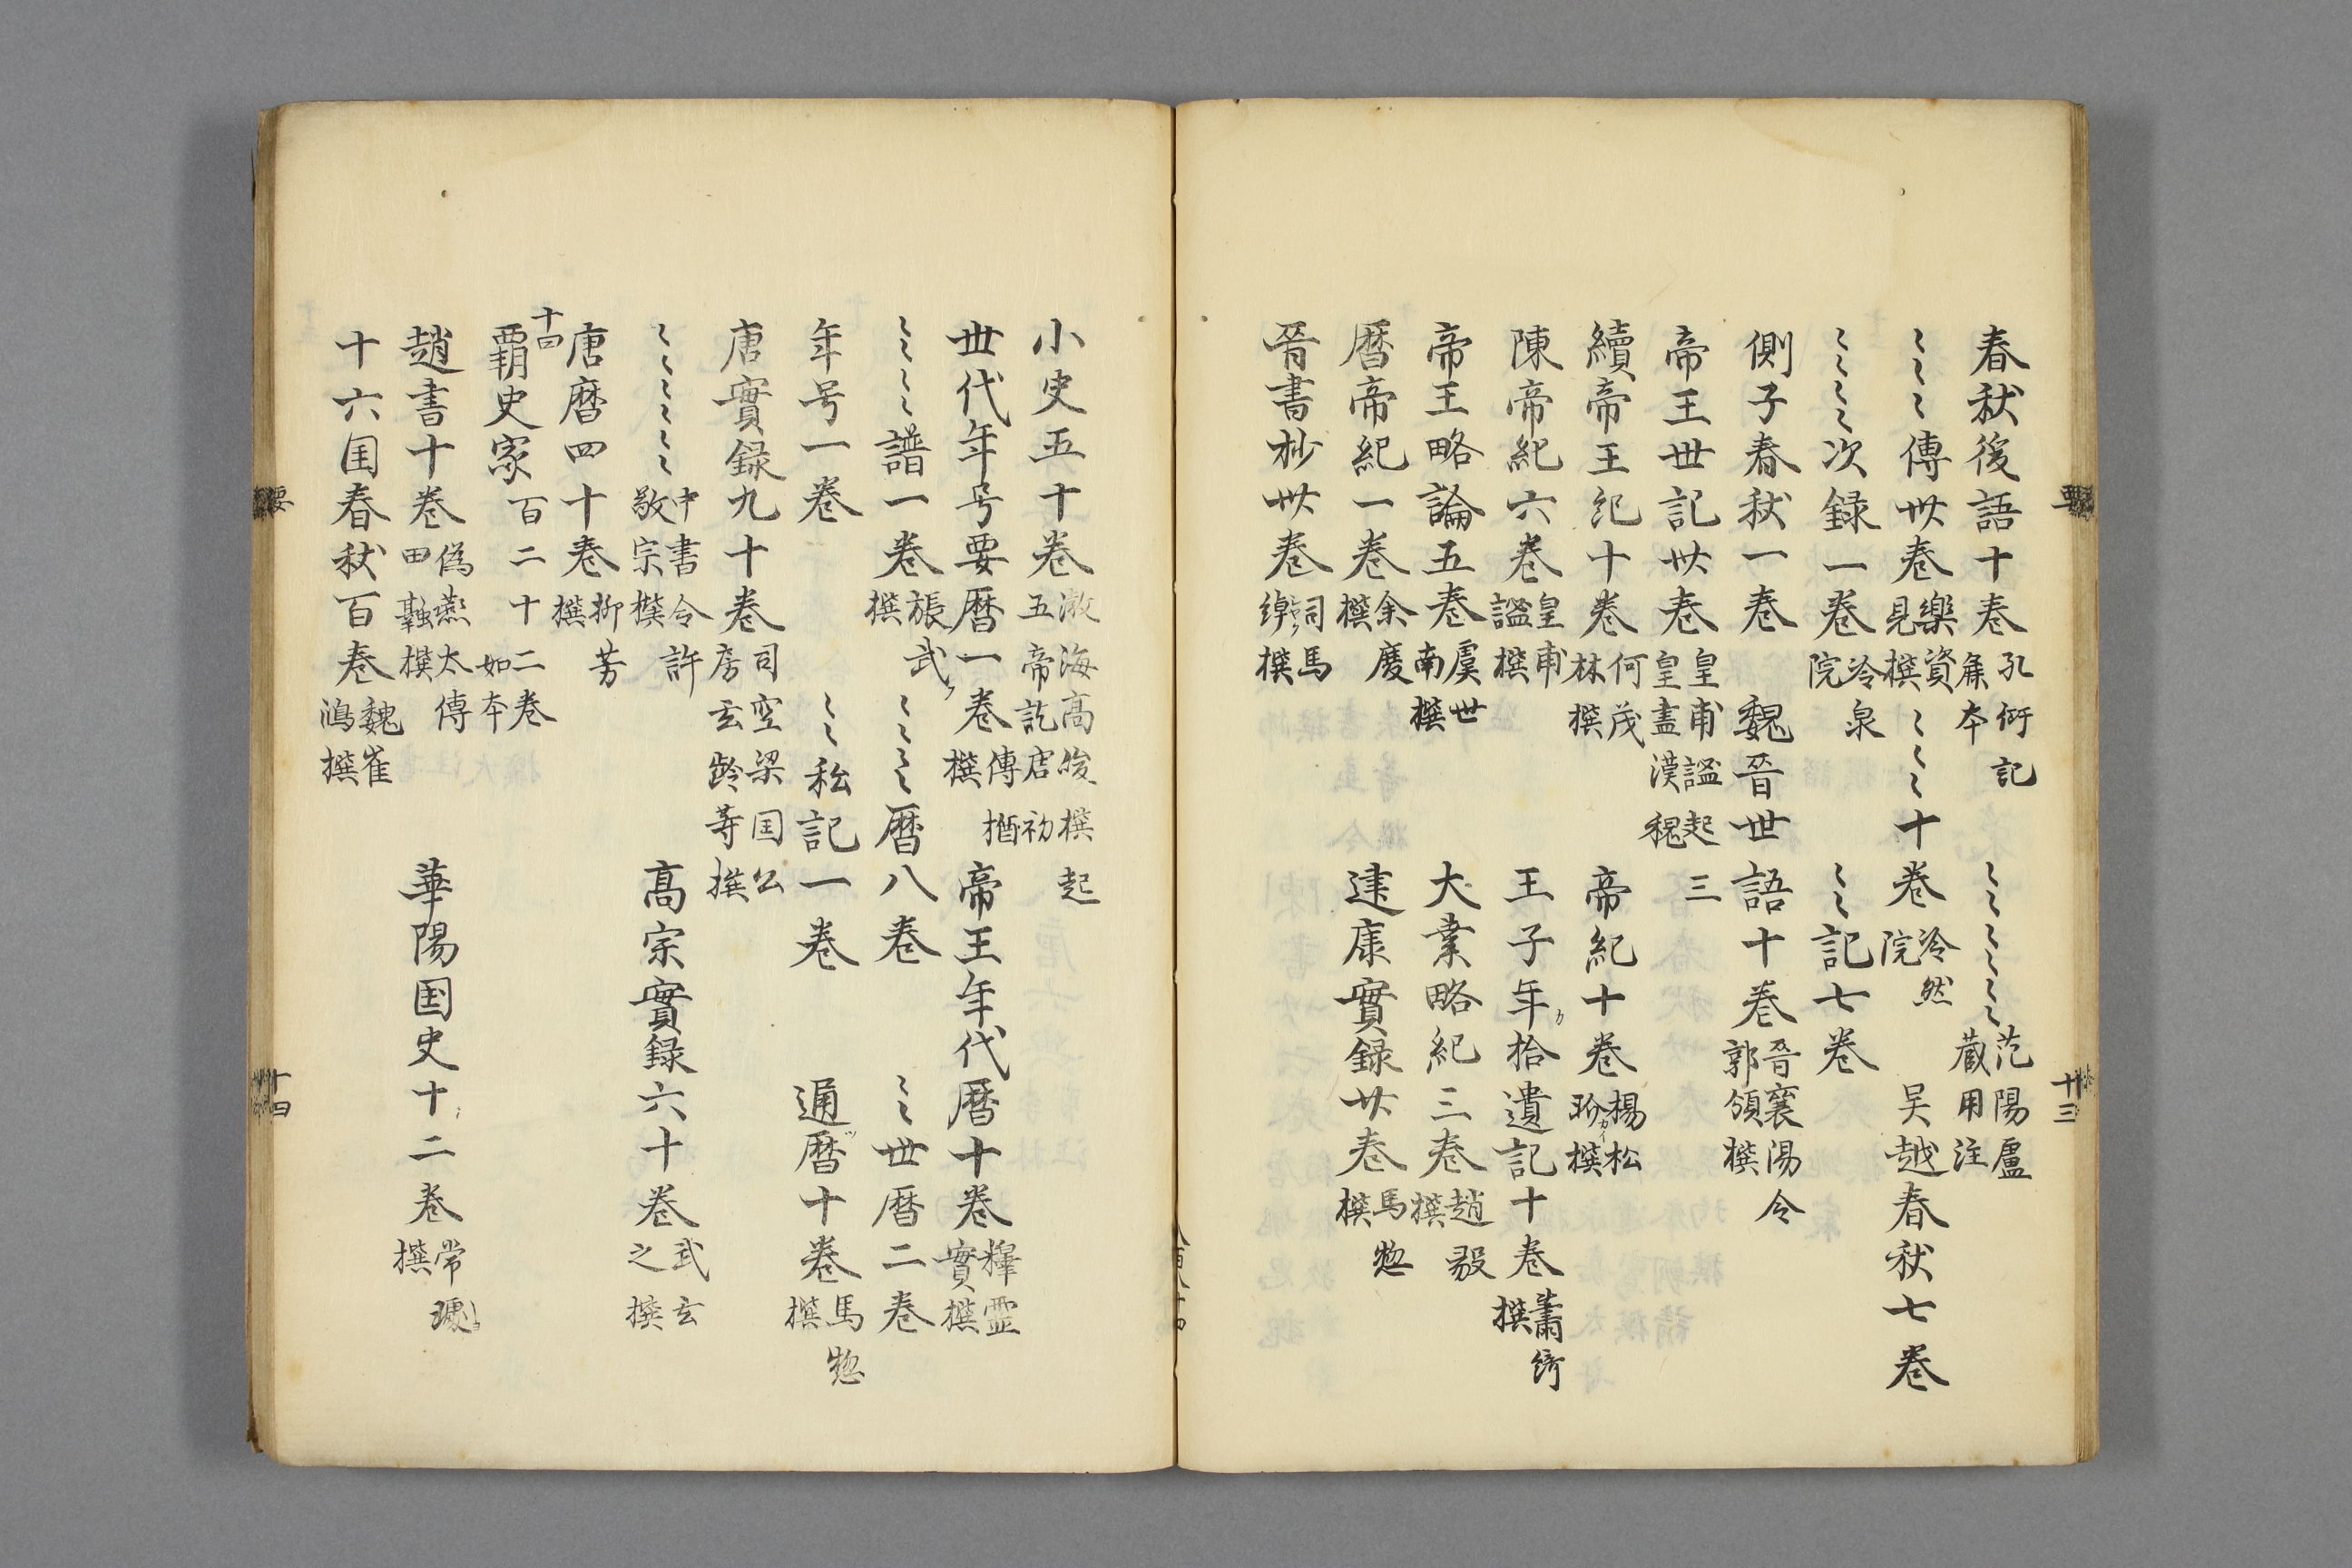 春秋後語十巻 孔衍記 麁本 〻〻〻〻〻〻 范陽盧蔵用注
〻〻〻傳丗巻 樂資見撰 〻〻〻十巻 冷然院 吴越春秋七巻
〻〻〻〻次録一巻 冷泉院 〻〻記七巻
側子春秋一巻 魏晉世語十巻 晉襄陽令郭頒撰
帝王世記丗巻 皇甫謐起三皇盡漢魏
續帝王紀十巻 何茂林撰 帝紀十巻 楊松玠撰
陳帝紀六巻 皇甫謐撰 王子年拾遺記十巻 蕭綺撰
帝王略論五巻 虞世南撰 大業略紀三巻 趙毅撰
暦帝紀一巻 余慶撰 建康實録廿巻 馬惣撰
晉書抄丗巻 司馬綽撰
要
十三
小史五十巻 渤海髙峻撰起五帝訖唐初
丗代年号要暦一巻 傳㨨撰 帝王年代暦十巻 釋霊實撰
〻〻〻〻譜一巻 旅武撰 〻〻〻〻暦八巻 〻〻世暦二巻
年号一巻 〻〻私記一巻 通暦十巻 馬惣撰
唐實録九十巻 司空梁国公房玄齡等撰
〻〻〻〻〻〻 中書令許敬宗撰 髙宗實録六十巻 武玄之撰
唐暦四十巻 柳芳撰
十四
覇史家 百二十二巻 如本
趙書十巻 偽燕太傳田融撰 華陽国史十二巻 常璩撰
十六国春秋百巻 魏崔鴻撰
要
十四